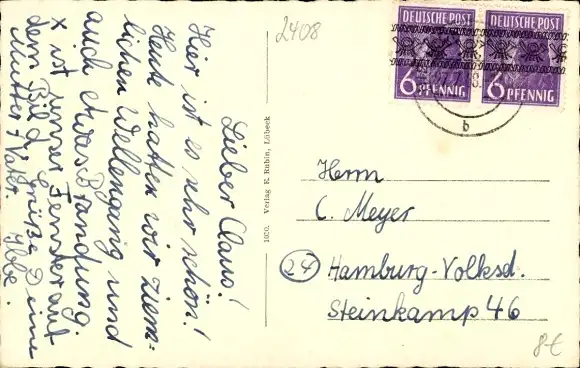 Lieber Claus!
Hier ist es sehr schön!
Heute hatten wir ziem-
lichen Wellengang und
auch etwas Brandung.
x ist unser Fenster auf
dem Bild. Grüße Deine
Mutter + Vater.
2408
1600. Verlag E. Rubin, Lübeck
DEUTSCHE POST
6 PFENNIG
DEUTSCHE POST
6 PFENNIG
b
Herrn
C. Meyer
24 Hamburg-Volksd.
Steinkamp 46
8€